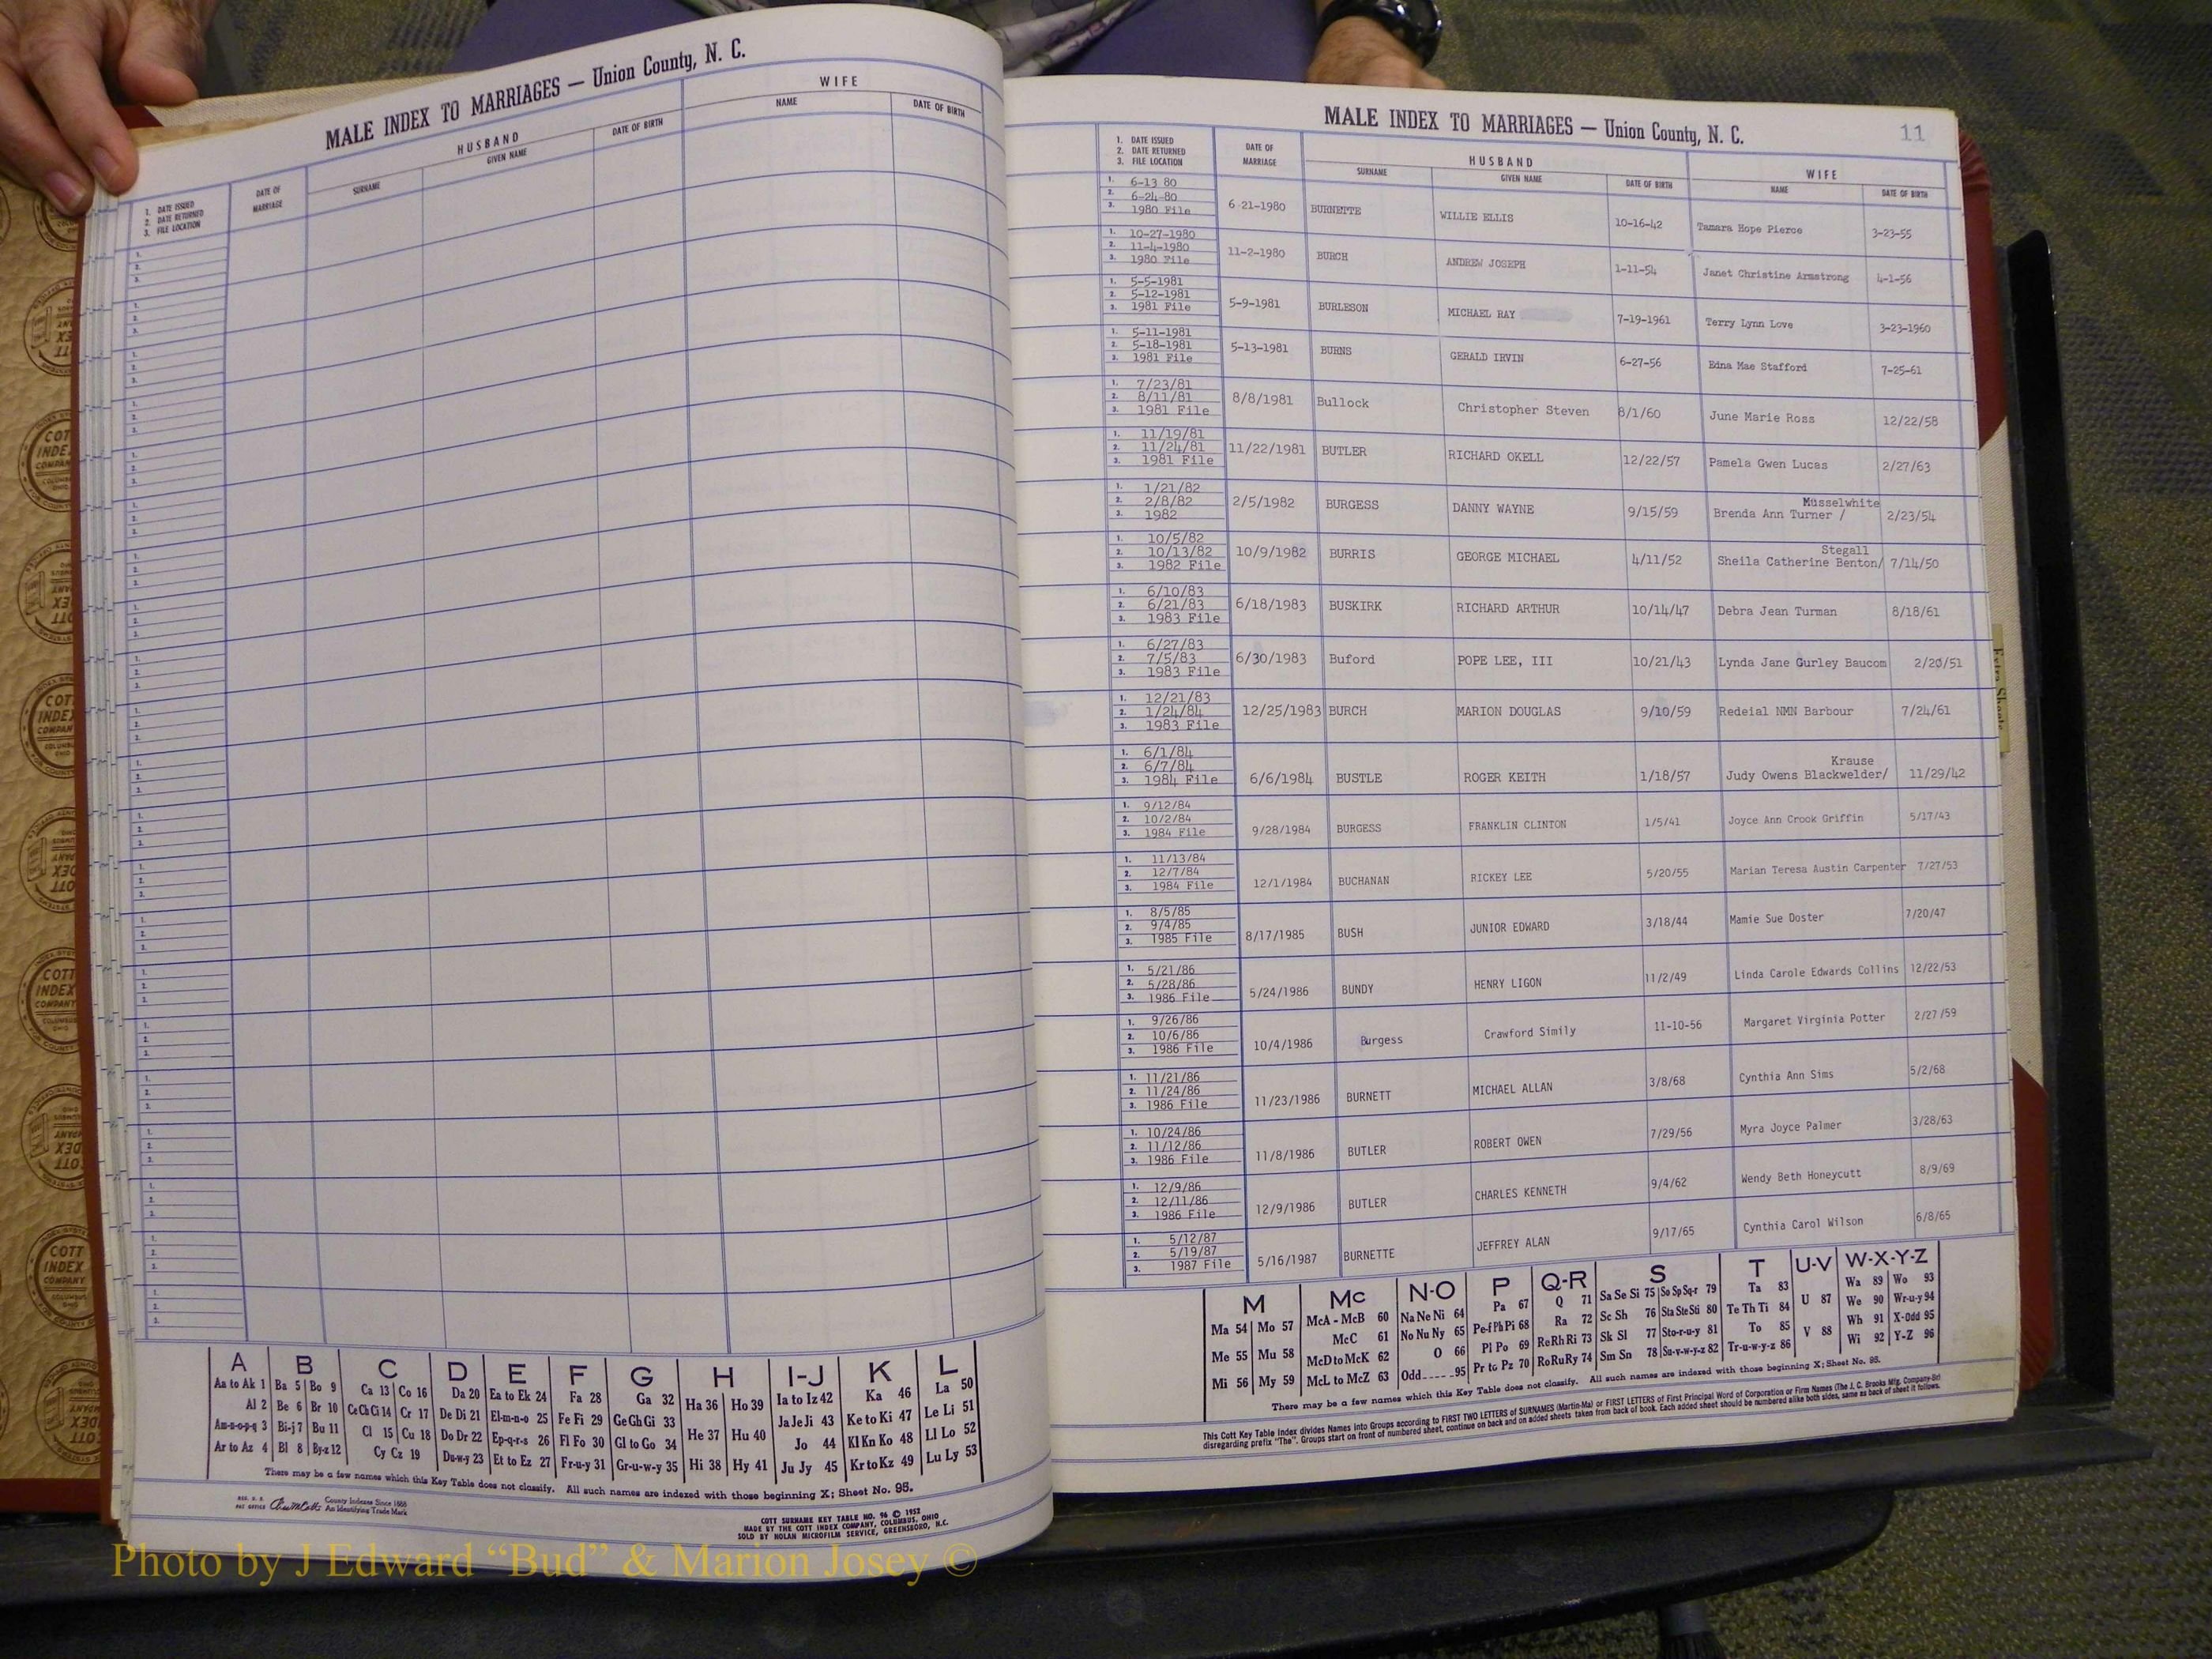 MALE INDEX TO MARRIAGES — Union County, N. C.
HUSBAND WIFE
1. DATE ISSUED 2. DATE RETURNED 3. FILE LOCATION
DATE OF MARRIAGE
SURNAME GIVEN NAME DATE OF BIRTH NAME DATE OF BIRTH
A B C D E F G H I-J K L
Aa to Ak 1 Ba 5 Bo 9 Ca 13 Co 16 Da 20 Ea to Ek 24 Fa 28 Ga 32 Ha 36 Ho 39 Ia to Iz 42 Ka 46 La 50
Al 2 Be 6 Br 10 Ce Ch Ci 14 Cr 17 De Di 21 El-m-n-o 25 Fe Fi 29 Ge Gh Gi 33 He 37 Hu 40 Ja Je Ji 43 Ke to Ki 47 Le Li 51
Am-n-o-p-q 3 Bi-j 7 Bu 11 Cl 15 Cu 18 Do Dr 22 Ep-q-r-s 26 Fl Fo 30 Gl to Go 34 Hi 38 Hy 41 Jo 44 Kl Kn Ko 48 Ll Lo 52
Ar to Az 4 Bl 8 By-z 12 Cy Cz 19 Du-w-y 23 Et to Ez 27 Fr-u-y 31 Gr-u-w-y 35 Ju Jy 45 Kr to Kz 49 Lu Ly 53
There may be a few names which this Key Table does not classify. All such names are indexed with those beginning X; Sheet No. 95.
County Indexes Since 1888
An Identifying Trade Mark
COTT SURNAME KEY TABLE NO. 96 © 1952
MADE BY THE COTT INDEX COMPANY, COLUMBUS, OHIO
SOLD BY NOLAN MICROFILM SERVICE, GREENSBORO, N.C.
Photo by J Edward “Bud” & Marion Josey ©
MALE INDEX TO MARRIAGES — Union County, N. C. 11
1. DATE ISSUED 2. DATE RETURNED 3. FILE LOCATION
DATE OF MARRIAGE
HUSBAND WIFE
SURNAME GIVEN NAME DATE OF BIRTH NAME DATE OF BIRTH
1. 6-13 80
2. 6-24-80
3. 1980 File 6 21-1980 BURNETTE WILLIE ELLIS 10-16-42 Tamara Hope Pierce 3-23-55
1. 10-27-1980
2. 11-4-1980
3. 1980 File 11-2-1980 BURCH ANDREW JOSEPH 1-11-54 Janet Christine Armstrong 4-1-56
1. 5-5-1981
2. 5-12-1981
3. 1981 File 5-9-1981 BURLESON MICHAEL RAY 7-19-1961 Terry Lynn Love 3-23-1960
1. 5-11-1981
2. 5-18-1981
3. 1981 File 5-13-1981 BURNS GERALD IRVIN 6-27-56 Edna Mae Stafford 7-25-61
1. 7/23/81
2. 8/11/81
3. 1981 File 8/8/1981 Bullock Christopher Steven 8/1/60 June Marie Ross 12/22/58
1. 11/19/81
2. 11/24/81
3. 1981 File 11/22/1981 BUTLER RICHARD OKELL 12/22/57 Pamela Gwen Lucas 2/27/63
1. 1/21/82
2. 2/8/82
3. 1982 2/5/1982 BURGESS DANNY WAYNE 9/15/59 Brenda Ann Turner / Musselwhite 2/23/54
1. 10/5/82
2. 10/13/82
3. 1982 File 10/9/1982 BURRIS GEORGE MICHAEL 4/11/52 Sheila Catherine Benton/ Stegall 7/14/50
1. 6/10/83
2. 6/21/83
3. 1983 File 6/18/1983 BUSKIRK RICHARD ARTHUR 10/14/47 Debra Jean Turman 8/18/61
1. 6/27/83
2. 7/5/83
3. 1983 File 6/30/1983 Buford POPE LEE, III 10/21/43 Lynda Jane Gurley Baucom 2/20/51
1. 12/21/83
2. 1/24/84
3. 1983 File 12/25/1983 BURCH MARION DOUGLAS 9/10/59 Redeial NMN Barbour 7/24/61
1. 6/1/84
2. 6/7/84
3. 1984 File 6/6/1984 BUSTLE ROGER KEITH 1/18/57 Judy Owens Blackwelder/ Krause 11/29/42
1. 9/12/84
2. 10/2/84
3. 1984 File 9/28/1984 BURGESS FRANKLIN CLINTON 1/5/41 Joyce Ann Crook Griffin 5/17/43
1. 11/13/84
2. 12/7/84
3. 1984 File 12/1/1984 BUCHANAN RICKEY LEE 5/20/55 Marian Teresa Austin Carpenter 7/27/53
1. 8/5/85
2. 9/4/85
3. 1985 File 8/17/1985 BUSH JUNIOR EDWARD 3/18/44 Mamie Sue Doster 7/20/47
1. 5/21/86
2. 5/28/86
3. 1986 File 5/24/1986 BUNDY HENRY LIGON 11/2/49 Linda Carole Edwards Collins 12/22/53
1. 9/26/86
2. 10/6/86
3. 1986 File 10/4/1986 Burgess Crawford Simily 11-10-56 Margaret Virginia Potter 2/27/59
1. 11/21/86
2. 11/24/86
3. 1986 File 11/23/1986 BURNETT MICHAEL ALLAN 3/8/68 Cynthia Ann Sims 5/2/68
1. 10/24/86
2. 11/12/86
3. 1986 File 11/8/1986 BUTLER ROBERT OWEN 7/29/56 Myra Joyce Palmer 3/28/63
1. 12/9/86
2. 12/11/86
3. 1986 File 12/9/1986 BUTLER CHARLES KENNETH 9/4/62 Wendy Beth Honeycutt 8/9/69
1. 5/12/87
2. 5/19/87
3. 1987 File 5/16/1987 BURNETTE JEFFREY ALAN 9/17/65 Cynthia Carol Wilson 6/8/65
M Mc N-O P Q-R S T U-V W-X-Y-Z
Ma 54 Mo 57 McA - McB 60 Na Ne Ni 64 Pa 67 Q 71 Sa Se Si 75 So Sp Sq-r 79 Ta 83 U 87 Wa 89 Wo 93
Me 55 Mu 58 McC 61 No Nu Ny 65 Pe-f Ph Pi 68 Ra 72 Sc Sh 76 Sta Ste Sti 80 Te Th Ti 84 V 88 We 90 Wr-u-y 94
Mi 56 My 59 McD to McK 62 O 66 Pl Po 69 Re Rh Ri 73 Sk Sl 77 Sto-r-u-y 81 To 85 Wh 91 X-Odd 95
McL to McZ 63 Odd 95 Pr to Pz 70 Ro Ru Ry 74 Sm Sn 78 Su-v-w-y-z 82 Tr-u-w-y-z 86 Wi 92 Y-Z 96
There may be a few names which this Key Table does not classify. All such names are indexed with those beginning X; Sheet No. 95.
This Cott Key Table Index divides Names into Groups according to FIRST TWO LETTERS of SURNAMES (Martin-Ma) or FIRST LETTERS of First Principal Word of Corporation or Firm Names (The J. C. Brooks Mfg. Company-Br)
disregarding prefix "The". Groups start on front of numbered sheet, continue on back and on added sheets taken from back of book. Each added sheet should be numbered alike both sides, same as back of sheet it follows.